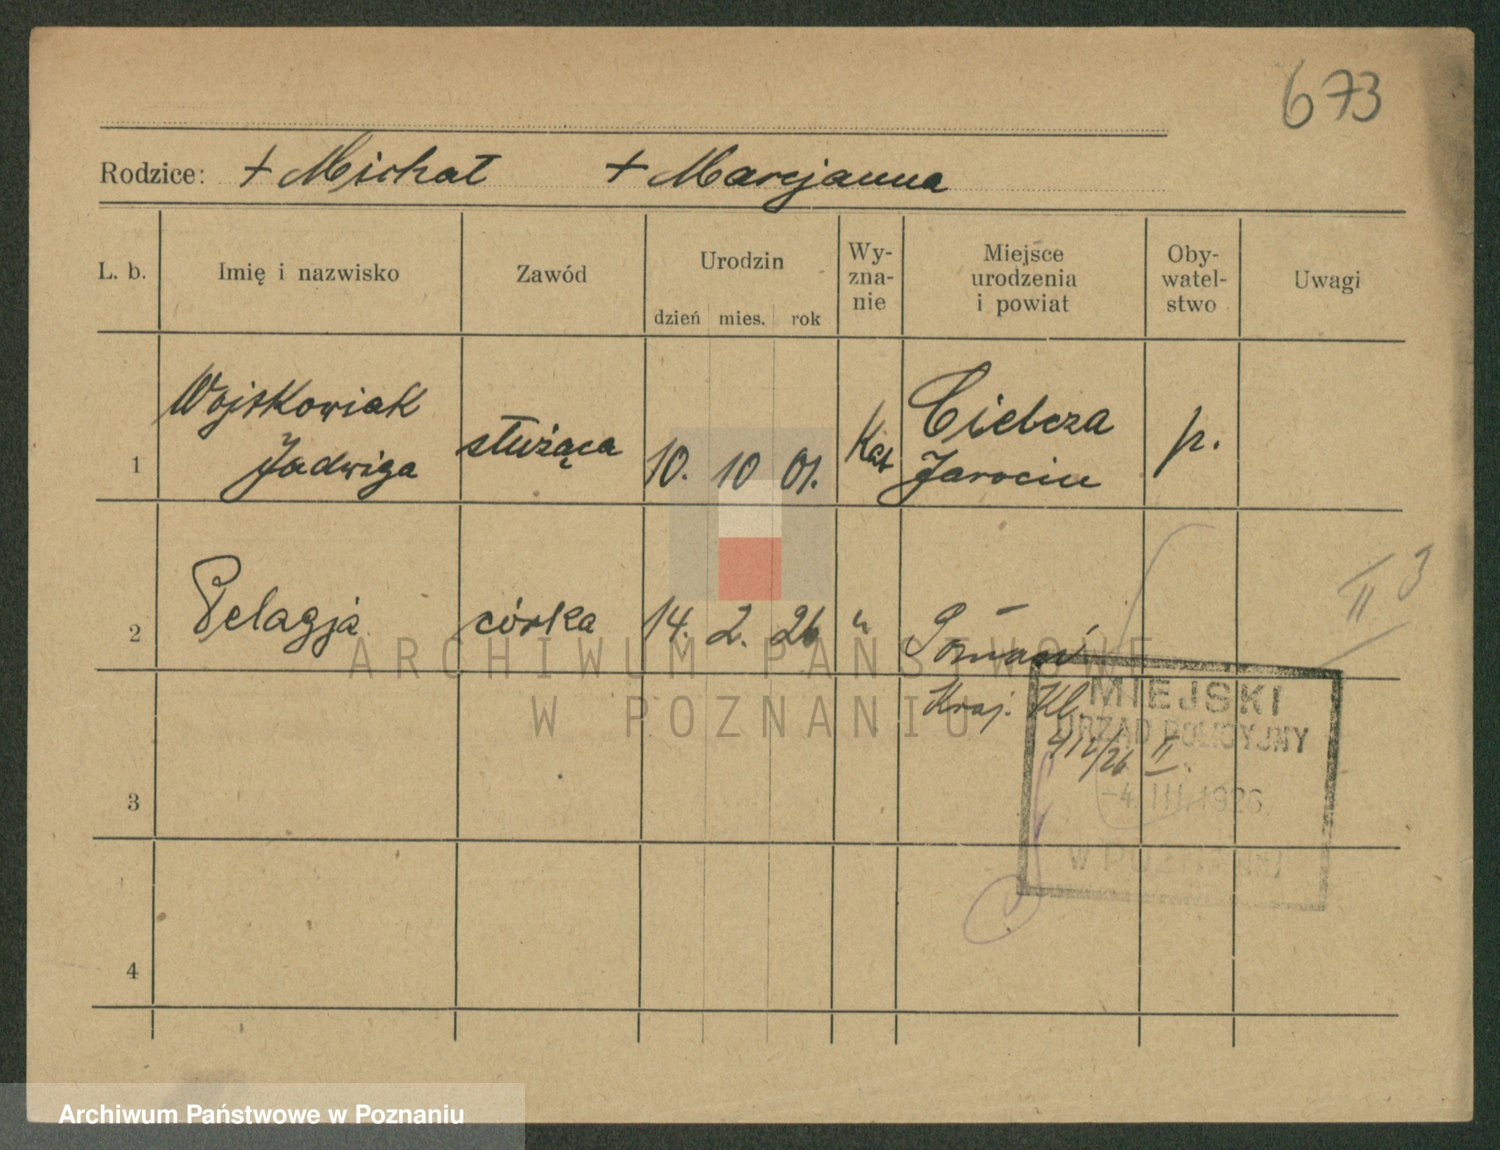 673
Rodzice: + Michał + Marcjanna
L. b. Imię i nazwisko Zawód Urodzin dzień mies. rok Wy-zna-nie Miejsce urodzenia i powiat Oby-watel-stwo Uwagi
Wojtkowiak
1 Jadwiga służąca 10. 10 01. Kat Cielcza p.
Jarocin
2 Pelagja córka 14. 2. 26 " Poznań
II 3
Kraj. Kl.
912/26 II.
MIEJSKI
URZĄD POLICYJNY
-4. III. 1926
W POZNANIU
3
4
ARCHIWUM PAŃSTWOWE
W POZNANIU
Archiwum Państwowe w Poznaniu